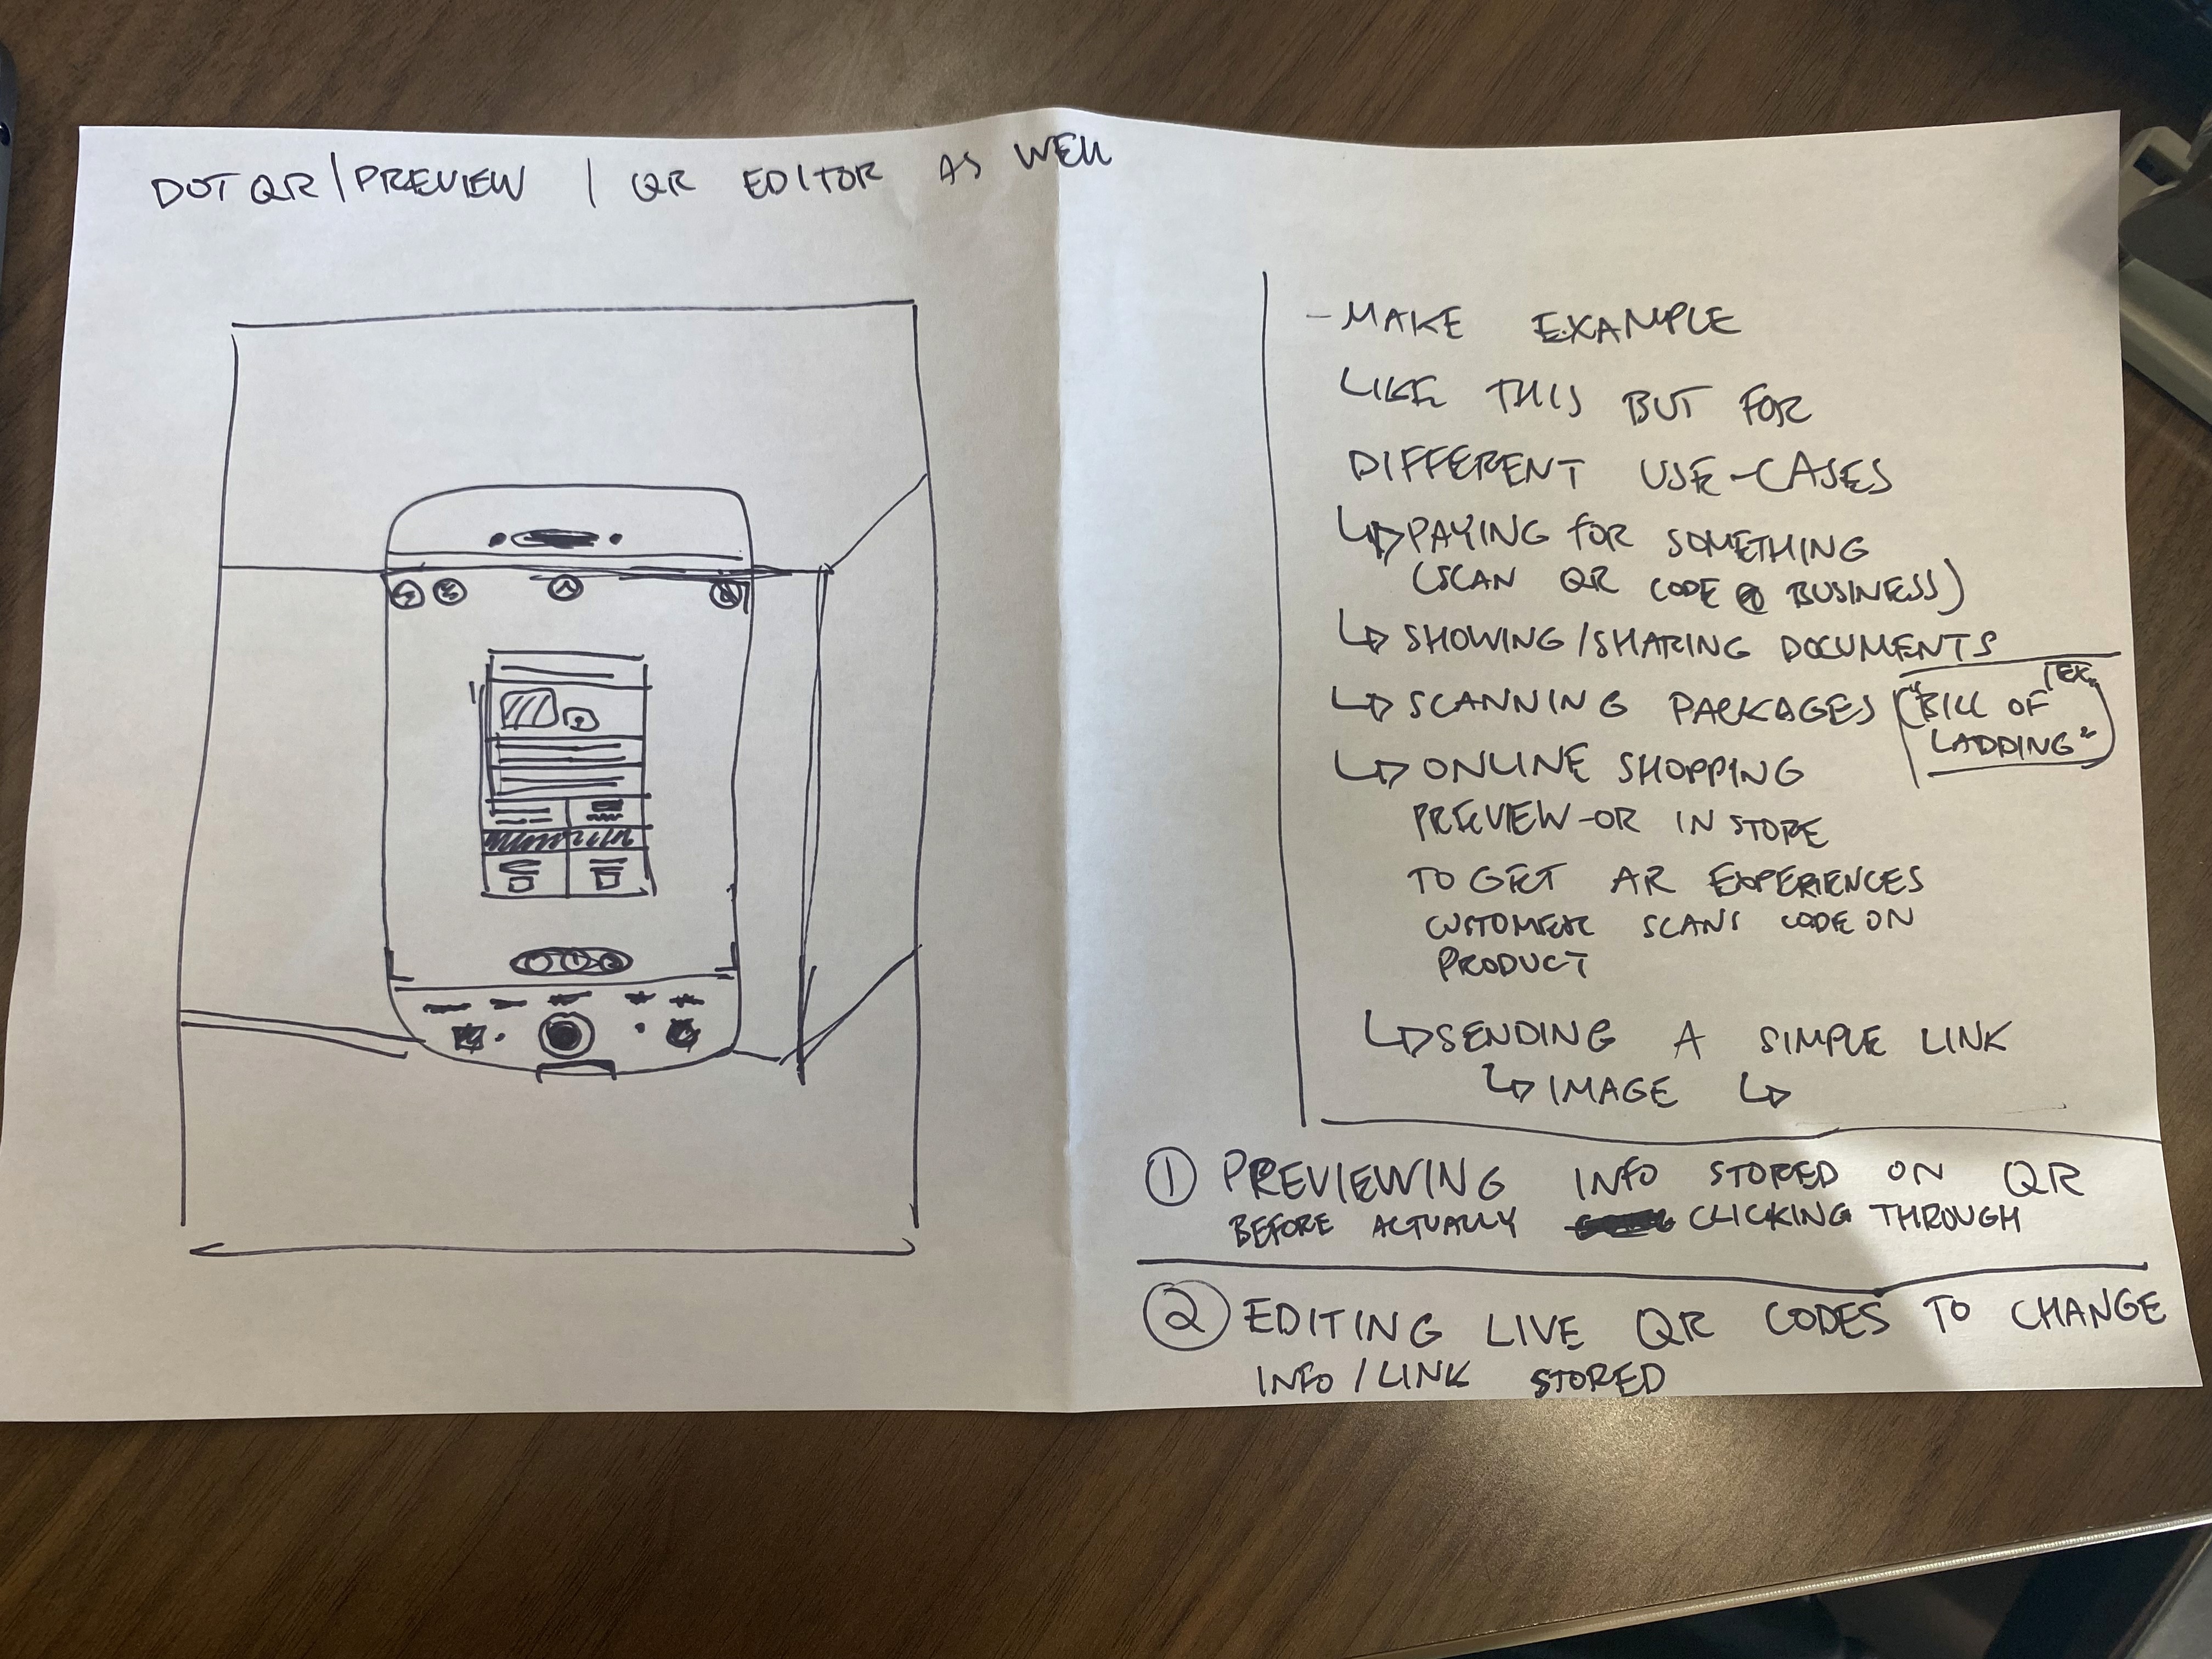 DOT QR/PREVIEW / QR EDITOR AS WELL
- MAKE EXAMPLE
LIKE THIS BUT FOR
DIFFERENT USE-CASES
↳ PAYING FOR SOMETHING
(SCAN QR CODE @ BUSINESS)
↳ SHOWING/SHARING DOCUMENTS
↳ SCANNING PACKAGES
EX.
("BILL OF
LADDING")
↳ ONLINE SHOPPING
PREVIEW-OR IN STORE
TO GET AR EXPERIENCES
CUSTOMER SCANS CODE ON
PRODUCT
↳ SENDING A SIMPLE LINK
↳ IMAGE ↳
① PREVIEWING INFO STORED ON QR
BEFORE ACTUALLY CLICKING THROUGH
② EDITING LIVE QR CODES TO CHANGE
INFO/LINK STORED